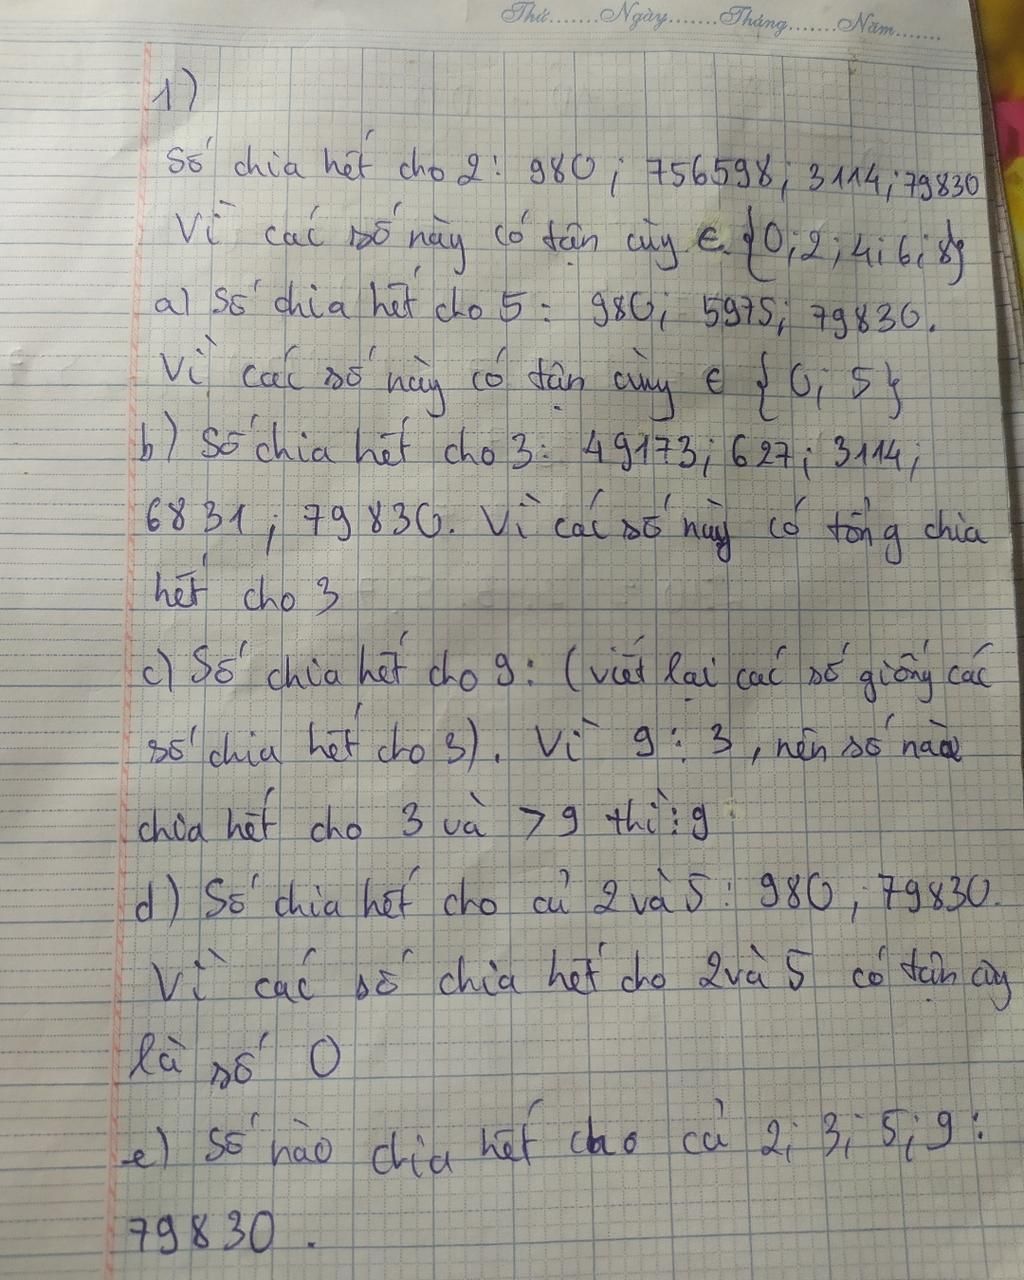 Thứ.......Ngày.......Tháng.......Năm.......
1)
Số chia hết cho 2: 980; 756598; 3114; 79830
Vì các số này có tận cùy ∈ {0; 2; 4; 6; 8}
a) Số chia hết cho 5: 980; 5975; 79830.
Vì các số này có tận cùng ∈ {0; 5}
b) Số chia hết cho 3: 49173; 627; 3114;
6831; 79830. Vì các số này có tổng chia
hết cho 3
c) Số chia hết cho 9: (viết lại các số giống các
số chia hết cho 3). Vì 9 ⋮ 3, nên số nào
chia hết cho 3 và > 9 thì ⋮ 9
d) Số chia hết cho cả 2 và 5: 980; 79830.
Vì các số chia hết cho 2 và 5 có tận cùy
là số 0
e) Số nào chia hết cho cả 2; 3; 5; 9:
79830.